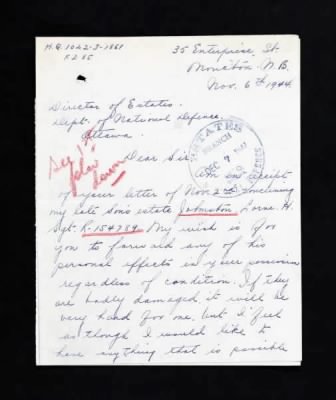 H.Q. 1022-J-1868
35 Enterprise St.
Moncton N.B.
Nov. 6th 1944
Director of Estates.
Dept. of National Defense.
Ottawa.
ESTATES
BRANCH
DEC 7
down
Dear Sir
Am in receipt
of your letter of Nov. 2nd concerning
my late Son's estate Johnston Lorne H.
Sgt. R-154789. My wish is for
you to forward any of his
personal effects in your
regardless of condition. If they
are badly damaged, it will be
very hard for me, but I feel
as though I would like to
have anything that is possible